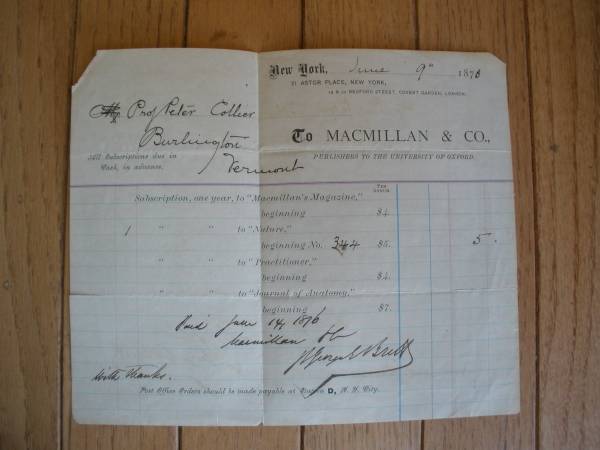 New York, June 9" 1876
21 ASTOR PLACE, NEW YORK,
BEDFORD STREET, COVENT GARDEN, LONDON.
Prof Peter Collier
Burlington
Vermont
To MACMILLAN & CO.,
PUBLISHERS TO THE UNIVERSITY OF OXFORD.
All Subscriptions due in
Week, in advance.
Per Annum.
Subscription, one year, to "Macmillan's Magazine,"
beginning $4.
1 " " to "Nature,"
beginning No. 344 $5. 5.
" " to "Practitioner,"
beginning $4.
" " to "Journal of Anatomy,"
beginning $7.
Paid June 14, 1876
Macmillan & Co
George Brett
With Thanks.
Post Office Orders should be made payable at Station D, N. Y. City.